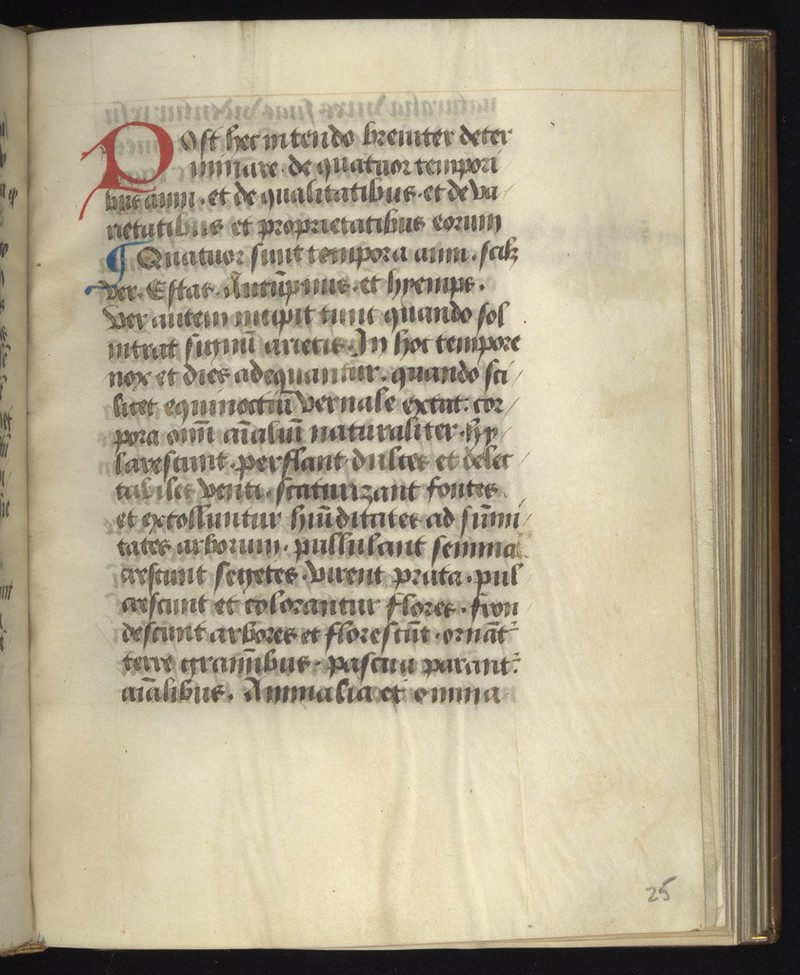 Post hec intendo breuiter deter
minare · de quatuor tempori
bus anni · et de qualitatibus · et de va
rietatibus et proprietatibus eorum
¶ Quatuor sunt tempora anni · scilꝫ
Ver · Estas · Autūpnus · et hyemps ·
Ver autem incipit tunc quando sol
intrat signū arietis · In hoc tempore
nox et dies adequantur · quando sci
licet equinoctiū vernale extat · cor
pora oīm aīaliū naturaliter · hy
larescunt · perflant dulces et delec
tabiles venti · scaturizant fontes
et extolluntur hūiditates ad sūmi
tates arborum · pullulant semina
crescunt segetes · virent prata · pul
crescunt et colorantur flores · fron
descunt arbores et florescūt · ornāt
terre gramībus · pascua parant
aīalibus · Animalia et omnia
25